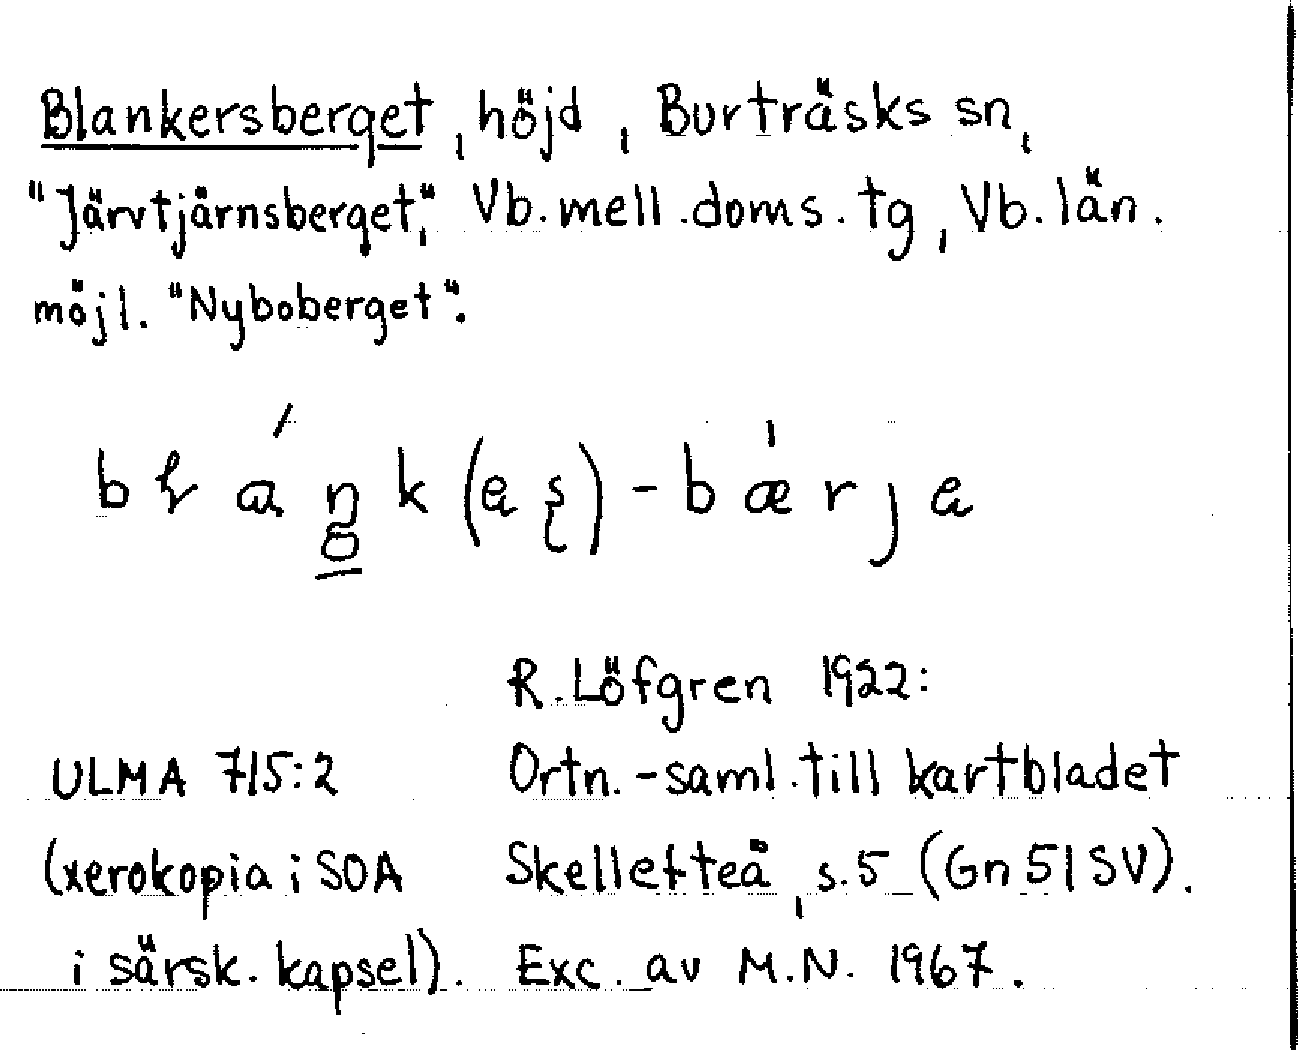 Blankersberget, höjd, Burträsks sn,
"Järvtjärnsberget", Vb. mell. doms. tg, Vb. län.
möjl. "Nyboberget".
R. Löfgren 1922:
ULMA 715:2 Ortn.-saml. till kartbladet
(xerokopia i SOA Skellefteå, s.5 (Gn 51 SV).
i särsk. kapsel). Exc. av M.N. 1967.